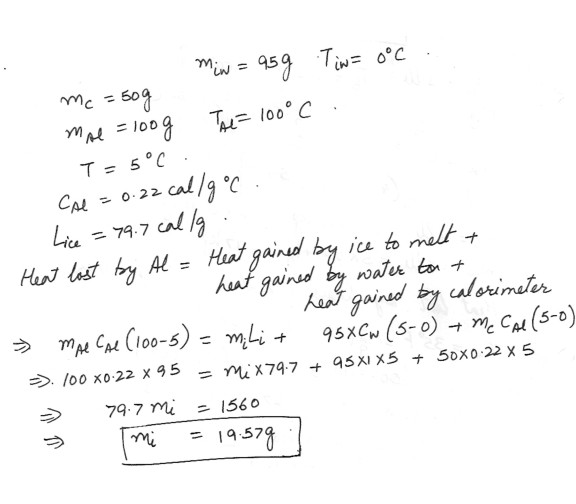 m_iw = 95g T_iw = 0°C .
m_c = 50g
m_Al = 100g T_Al = 100°C .
T = 5°C .
C_Al = 0.22 cal/g °C .
L_ice = 79.7 cal/g .
Heat lost by Al = Heat gained by ice to melt +
heat gained by water +
heat gained by calorimeter
⇒ m_Al C_Al (100-5) = m_i L_i + 95×C_w (5-0) + m_c C_Al (5-0)
⇒. 100 ×0.22 × 95 = m_i × 79.7 + 95×1×5 + 50×0.22 × 5
⇒ 79.7 m_i = 1560
⇒ m_i = 19.57g .